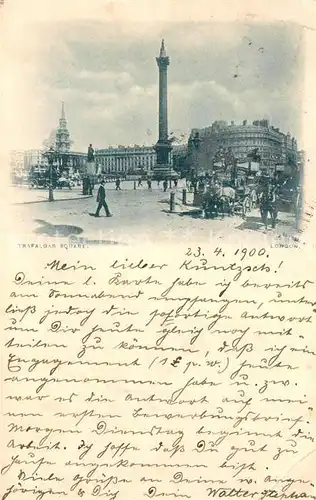 TRAFALGAR SQUARE.
LONDON.
23. 4. 1900.
Mein lieber Kuntzsch!
Deine l. Karte habe ich bereits
am Sonnabend empfangen, unter-
ließ jedoch die sofortige Antwort
um Dir heute gleich noch mit-
teilen zu können, daß ich ein
Engagement (1£ p. w.) heute
angenommen habe u. zw.
war es die Antwort auf mei-
nen ersten Bewerbungsbrief.
Morgen Dienstag beginnt die
Arbeit. Ich hoffe daß Du gut zu
Hause angekommen bist.
Viele Grüße an Deine w. Ange-
hörigen & Dich Dein Walter